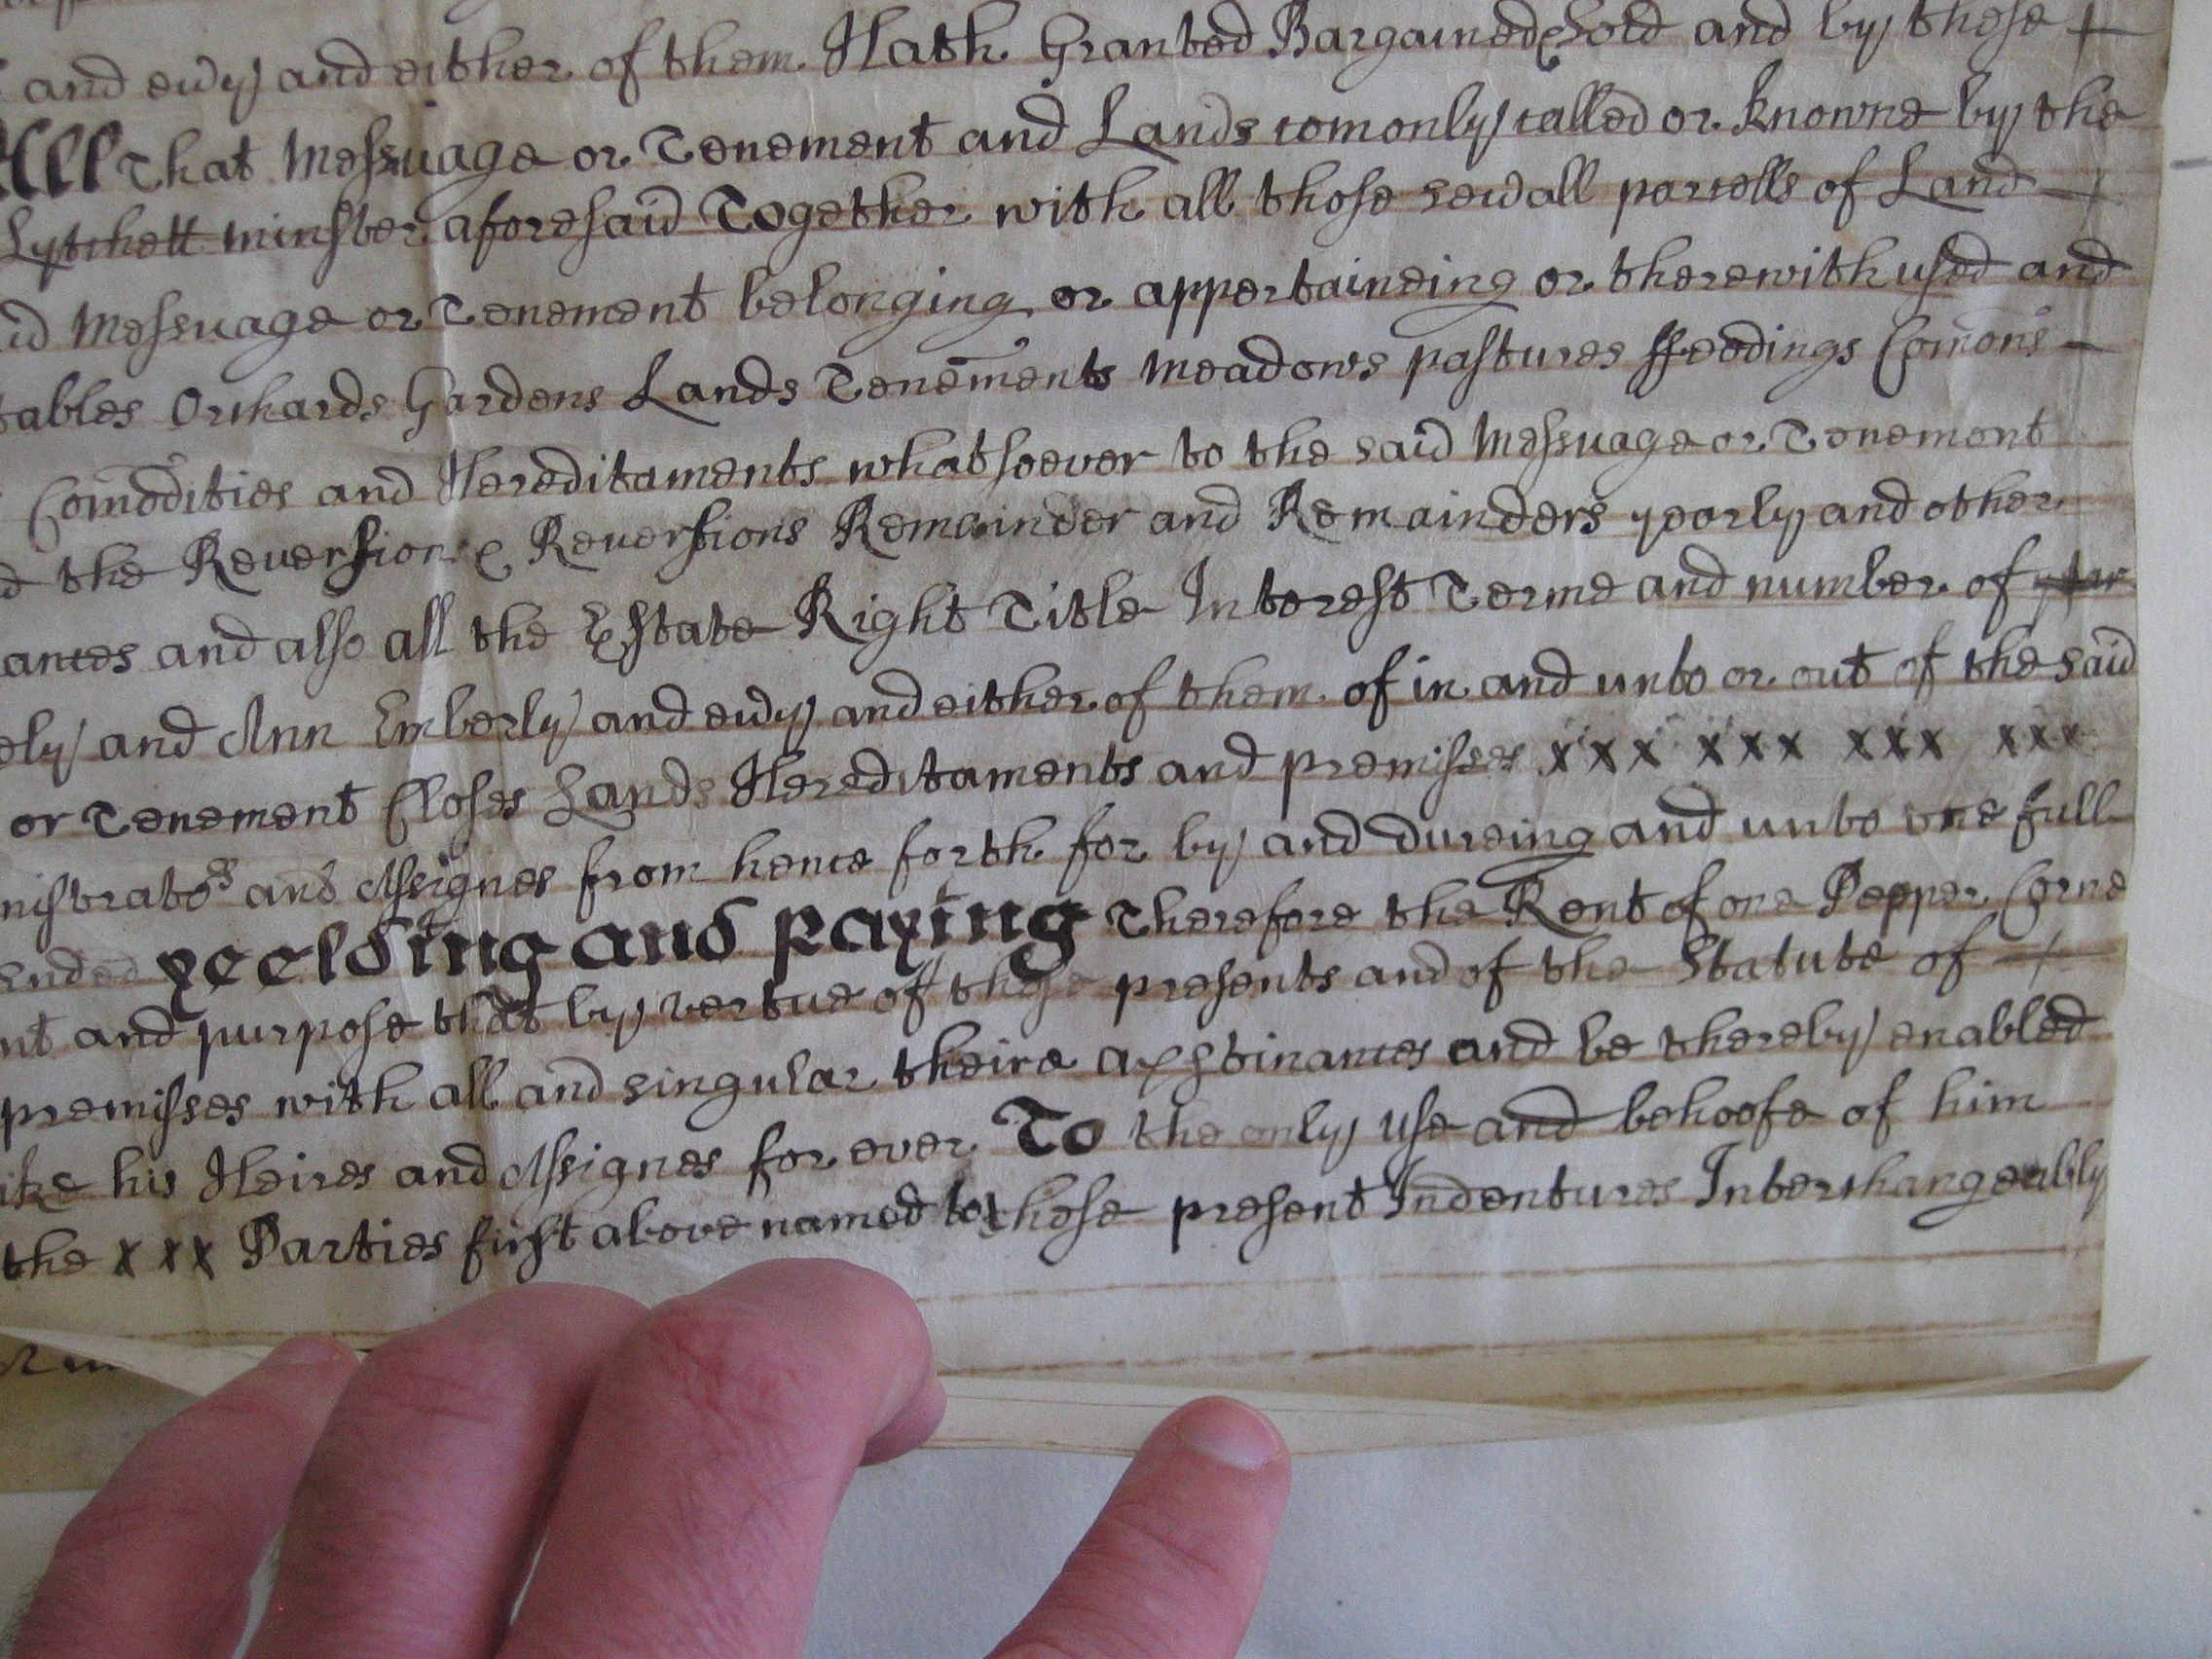 and evy and either of them Hath Granted Bargained & Sold and by these
All That Messuage or Tenement and Lands comonly called or knowne by the
Lytchett minster aforesaid Together with all those sevall parcells of Land
id Messuage or Tenement belonging or appertaineing or therewith used and
tables Orchards Gardens Lands Tenements meadows pastures ffeedings Comons
Comodities and Hereditaments whatsoever to the said Messuage or Tenement
the Reversion & Reversions Remainder and Remainders yearly and other
ances and also all the Estate Right Title Interest Terme and number of
ely and Ann Emberly and evy and either of them of in and unto or out of the said
or Tenement Closes Lands Hereditaments and premisses x x x x x x x x x x x x
nistrators and Assignes from hence forth for by and dureing and unto one full
ended yeelding and paying Therefore the Rent of one Pepper Corne
nt and purpose that by vertue of these presents and of the Statute of
premisses with all and singular theire apptinances and be thereby enabled
ike his Heires and Assignes for ever To the only use and behoofe of him
the x x x Parties first above named to these present Indentures Interchangeably